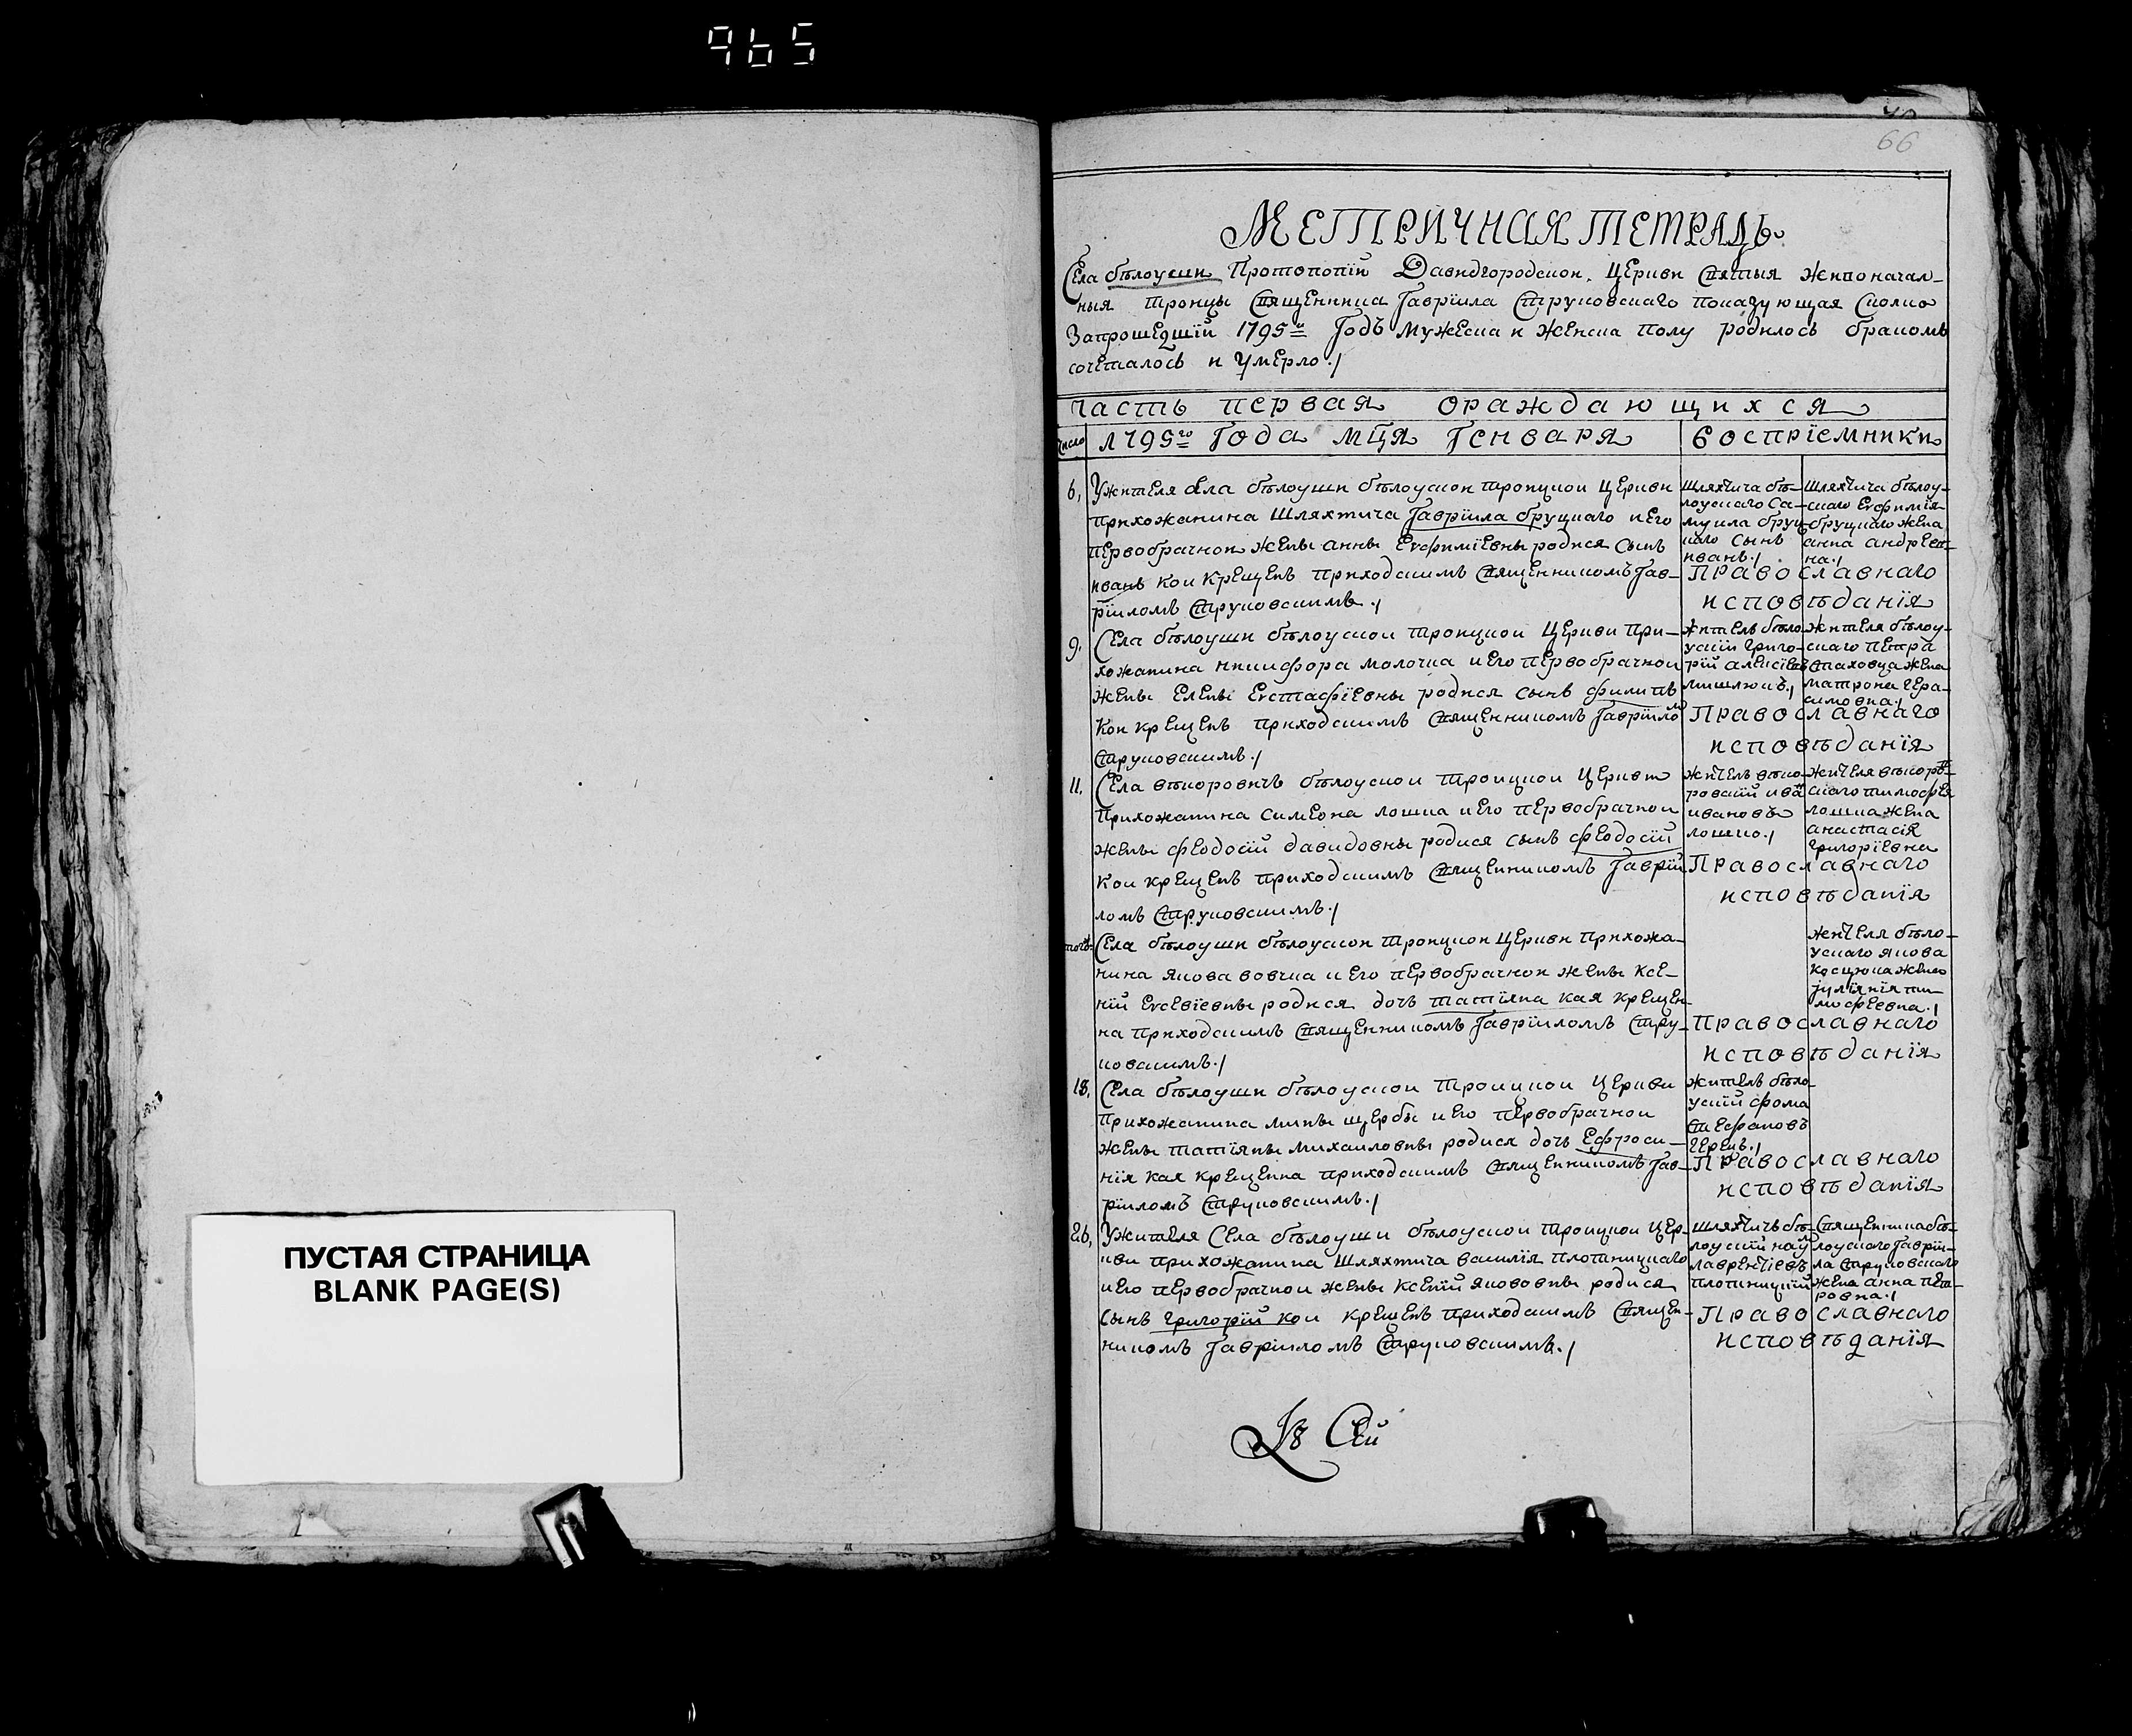 965
66
МЕТРИЧНАЯ ТЕТРАДЬ
Села бѣлоуши Протопопіи Давидгородской Церкви Святыя Живоначал-
ныя троицы Священника Гавріила Струковскаго показующая Сколко
Запрошедшій 1795й Годъ мужеска и женска полу родилось бракомъ
сочеталось и умерло./
часть первая ораждающихся
Число
1795го Года мця Генваря
восприемники
6,
Ужителя села бѣлоуши бѣлоускои троицкои Церкви
прихожанина шляхтича Гавріила бруцкаго и его
первобрачнои жены анны Евфиміевны родися сынъ
иванъ кои крещенъ приходскимъ Священникомъ Гав-
ріиломъ Струковскимъ./
шляхтича бѣ-
лоускаго Са-
муила бруц-
каго сынъ
иванъ./
шляхтича бѣлоу-
скаго Евфимія
бруцкаго жена
анна андреев-
на./
Православнаго
исповѣданія
9.
Села бѣлоуши бѣлоускои троицкои Церкви При-
хожанина никифора молочка и его первобрачнои
жены Елены Евстафіевны родися сынъ филипъ
кои крещенъ приходскимъ Священникомъ Гавріило
м
Струковскимъ./
житель бѣло-
ускій Григо-
рій алексіевъ
мишлюкъ./
жителя бѣлоу-
скаго Петра
жена
матрона Гера-
симовна./
Православнаго
исповѣданія
11.
Села вѣкоровичъ бѣлоускои троицкои Церкви
Прихожанина Симеона лошка и его первобрачнои
жены феодосіи давидовны родися сынъ феодосій
кои крещенъ приходскимъ Священникомъ Гавріи
ломъ Струковскимъ./
житель вѣко-
ровскій ива
ивановъ
лошко./
жителя вѣкоров-
скаго тимофея
лошка жена
анастасія
Григоріевна
Православнаго
исповѣданія
тогѡ
Села бѣлоуши бѣлоускои троицкои Церкви прихожа-
нина якова вовчка и его первобрачнои жены ксе-
ніи Евсевіевны родися дочь татіяна кая крещен-
на приходскимъ Священникомъ Гавріиломъ Стру-
ковскимъ./
жителя бѣло-
ускаго якова
жена
іуліянія ти-
мофеевна./
Православнаго
исповѣданія
18,
Села бѣлоуши бѣлоускои троицкои Церкви
прихожанина микиты щербы и его первобрачнои
жены татіяны михаиловны родися дочь Ефроси-
нія кая крещенна приходскимъ Священникомъ Гав-
ріиломъ Струковскимъ./
житель бѣло-
ускій фома
Стефановъ
Православнаго
исповѣданія
26,
Ужителя Села бѣлоуши бѣлоускои троицкои Цер-
кви прихожанина шляхтича василія плотницкаго
и его первобрачнои жены ксеніи яковovны родися
сынъ Григорій кои крещенъ приходскимъ Священ-
никомъ Гавріиломъ Струковскимъ./
шляхтичъ бѣ-
лоускій наум
лаврентіевъ
плотницкій
Священника бѣ-
лоускаго Гаврii-
ла Струковскаго
жена анна пет-
ровна./
Православнаго
исповѣданія
ПУСТАЯ СТРАНИЦА
BLANK PAGE(S)